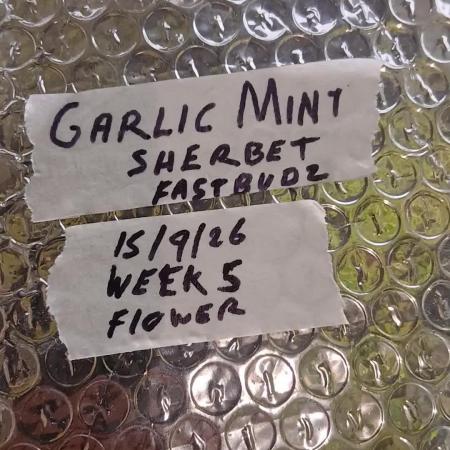 GARLIC MINT
SHERBET
FASTBUDZ
15/9/26
WEEK 5
FlOWER